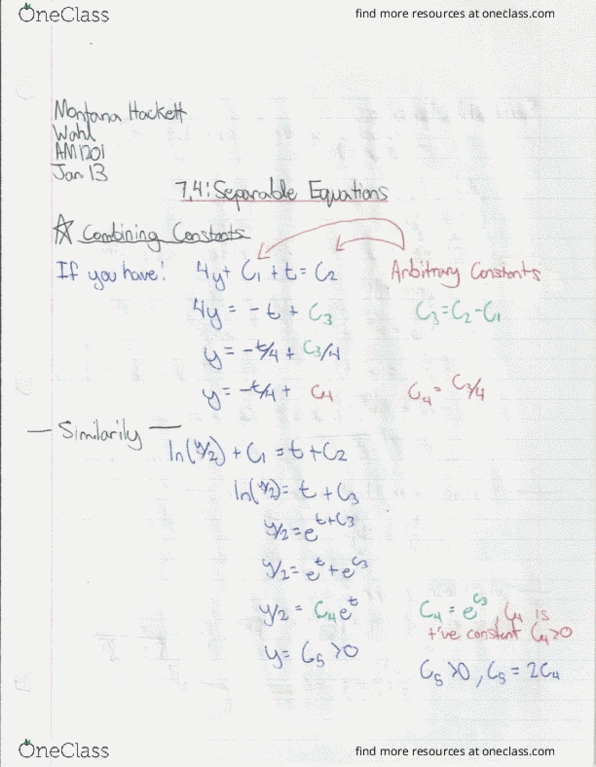 OneClass find more resources at oneclass.com
Montana Hackett
Wahl
AM1201
Jan 13
7.4: Separable Equations
☆ Combining Constants
If you have: 4y + C₁ + t = C₂ Arbitrary Constants
4y = -t + C₃ C₃ = C₂ - C₁
y = -t/4 + C₃/4
y = -t/4 + C₄ C₄ = C₃/4
— Similarily —
ln(y/2) + C₁ = t + C₂
ln(y/2) = t + C₃
y/2 = e^(t+C₃)
y/2 = e^t + e^C₃
y/2 = C₄e^t C₄ = e^C₃, C₄ is
t've constant C₄>0
y = C₅ >0
C₅ >0, C₅ = 2C₄
OneClass find more resources at oneclass.com